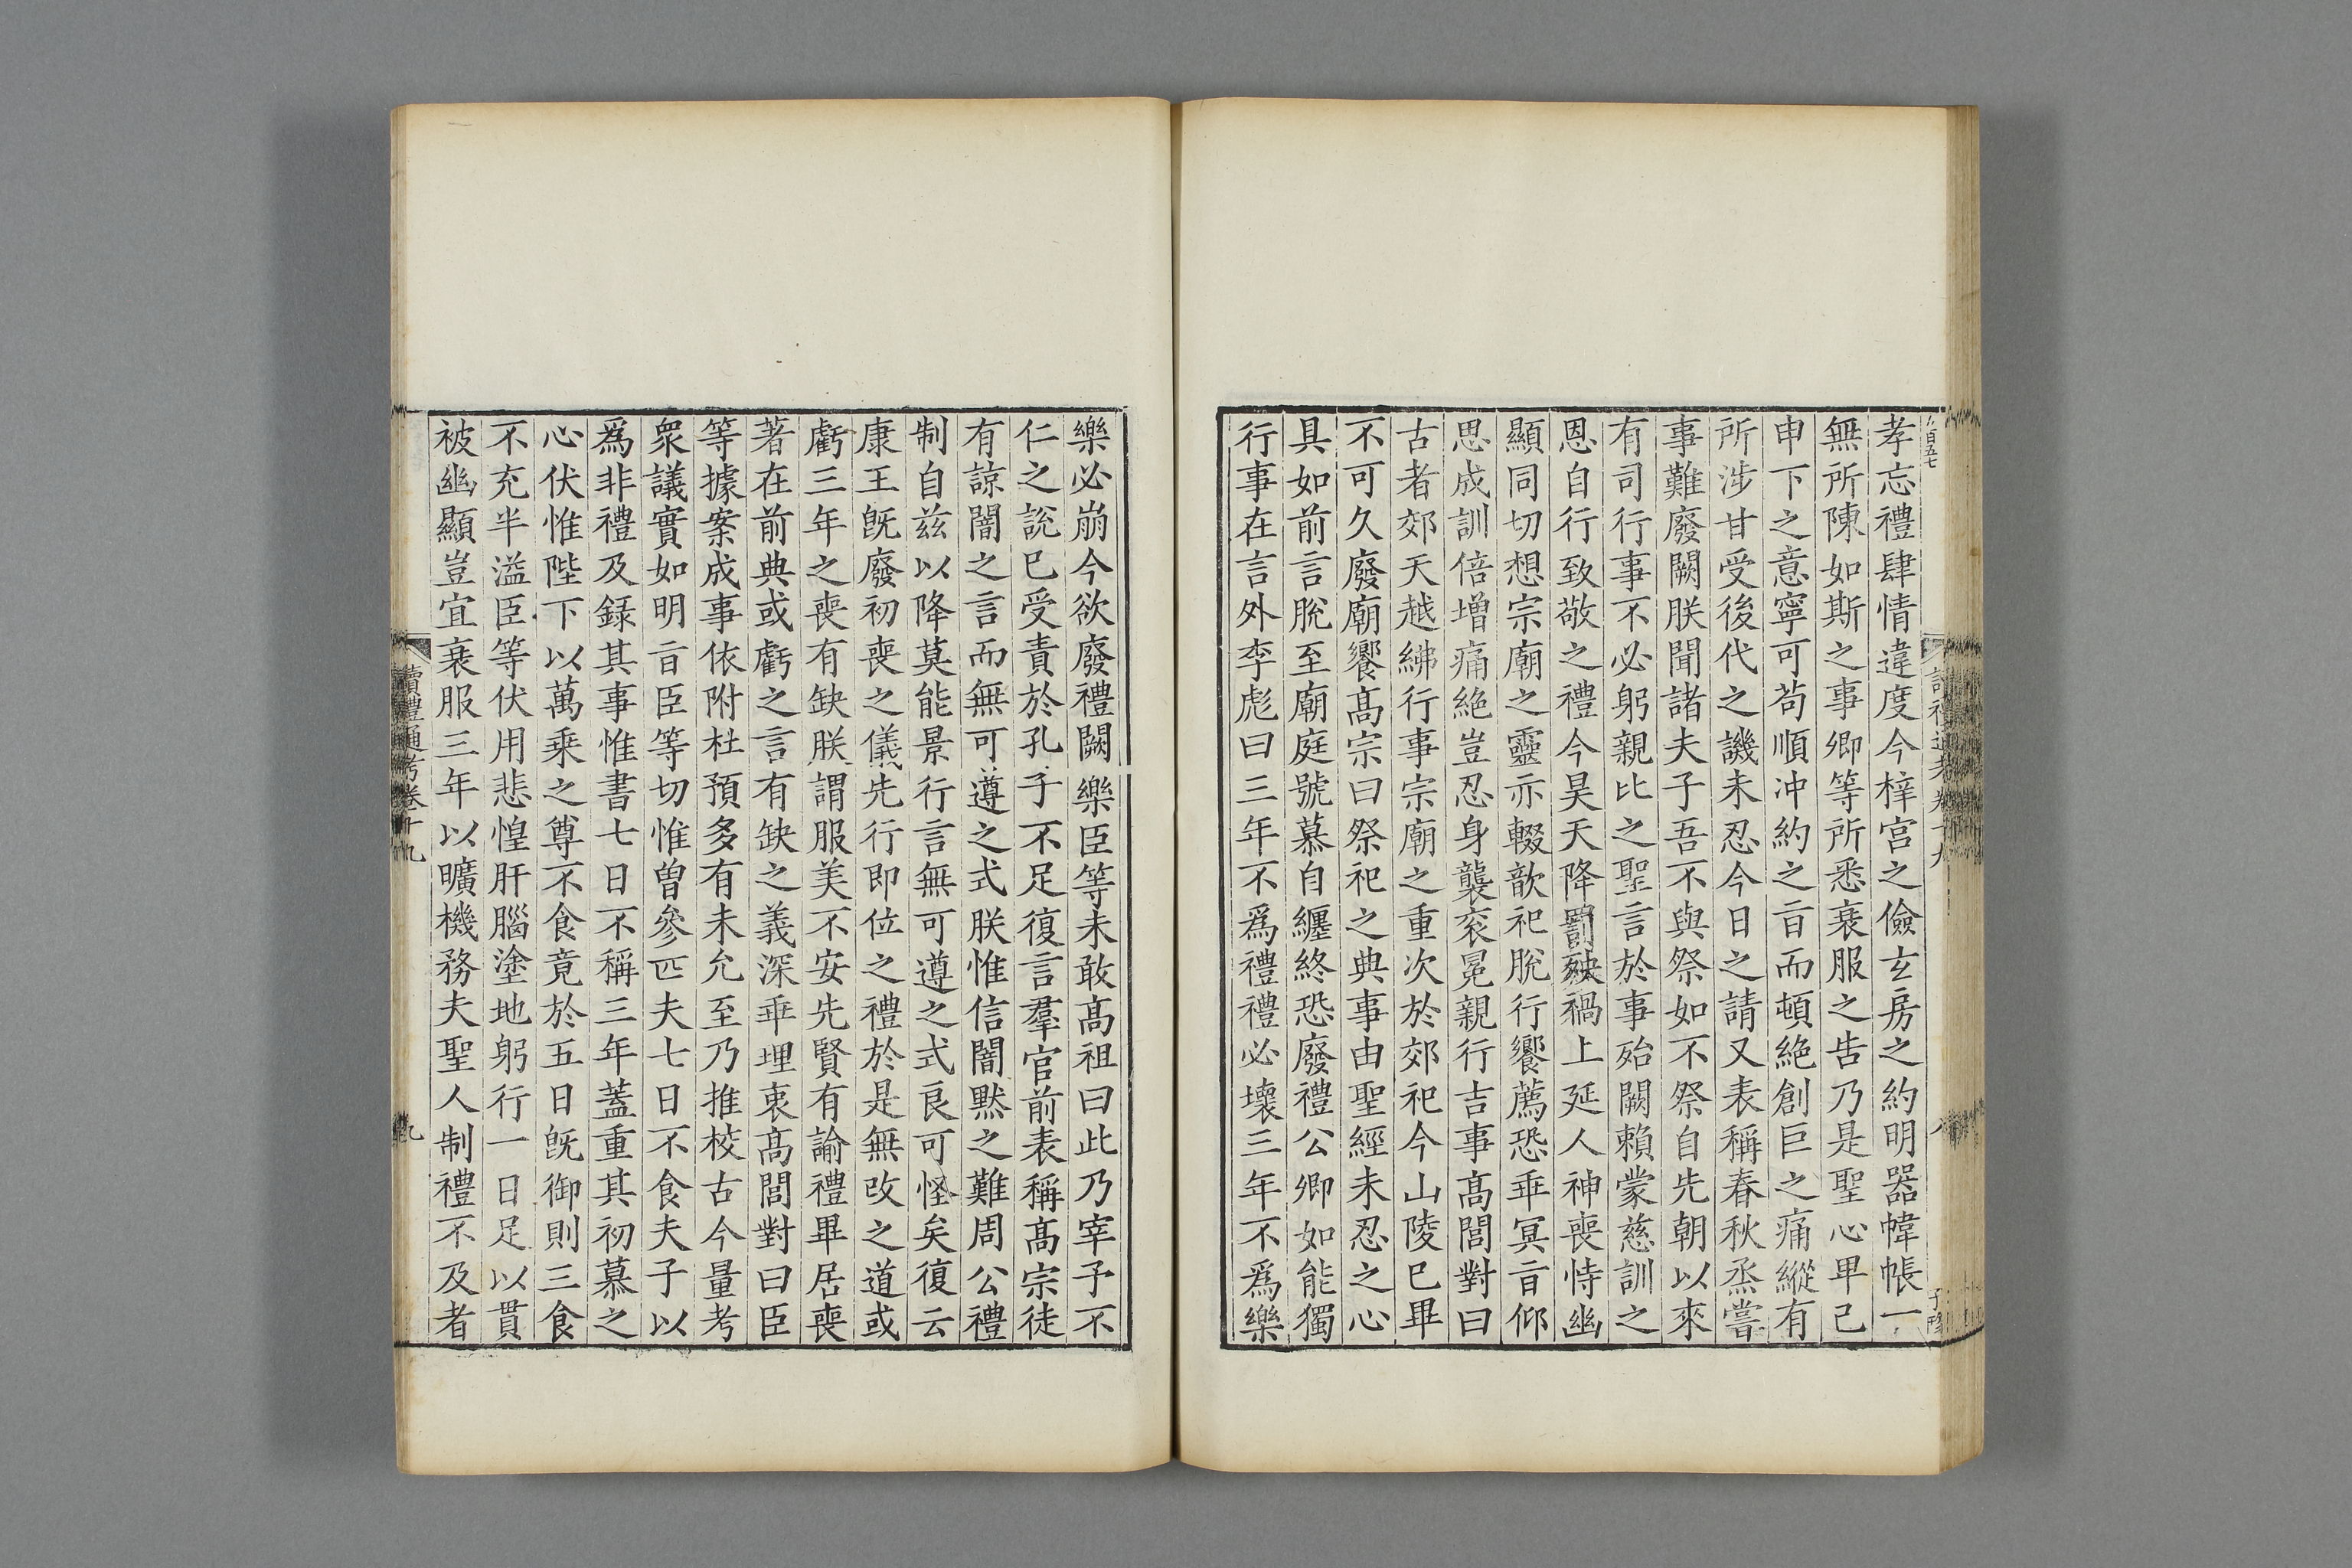 孝忘禮肆情違度今梓宮之儉玄房之約明器幃帳一
無所陳如斯之事卿等所悉衰服之告乃是聖心卑己
申下之意寧可苟順沖約之旨而頓絶創巨之痛縱有
所涉甘受後代之譏未忍今日之請又表稱春秋烝嘗
事難廢闕朕聞諸夫子吾不與祭如不祭自先朝以來
有司行事不必躬親比之聖言於事殆闕賴蒙慈訓之
恩自行致敬之禮今昊天降罰殃禍上延人神喪恃幽
顯同切想宗廟之靈亦輟歆祀脫行饗薦恐乖冥旨仰
思成訓倍增痛絶豈忍身襲衮冕親行吉事高閭對曰
古者郊天越紼行事宗廟之重次於郊祀今山陵已畢
不可久廢廟饗高宗曰祭祀之典事由聖經未忍之心
具如前言脫至廟庭號慕自纏終恐廢禮公卿如能獨
行事在言外李彪曰三年不爲禮禮必壞三年不爲樂
樂必崩今欲廢禮闕樂臣等未敢高祖曰此乃宰予不
仁之說已受責於孔子不足復言羣官前表稱高宗徒
有諒闇之言而無可遵之式朕惟信闇默之難周公禮
制自兹以降莫能景行言無可遵之式良可怪矣復云
康王旣廢初喪之儀先行即位之禮於是無改之道或
虧三年之喪有缺朕謂服美不安先賢有諭禮畢居喪
著在前典或虧之言有缺之義深乖理衷高閭對曰臣
等據案成事依附杜預多有未允至乃推校古今量考
衆議實如明旨臣等切惟曾參匹夫七日不食夫子以
爲非禮及録其事惟書七日不稱三年蓋重其初慕之
心伏惟陛下以萬乘之尊不食竟於五日旣御則三食
不充半溢臣等伏用悲惶肝腦塗地躬行一日足以貫
被幽顯豈宜衰服三年以曠機務夫聖人制禮不及者
讀禮通考卷十九
九